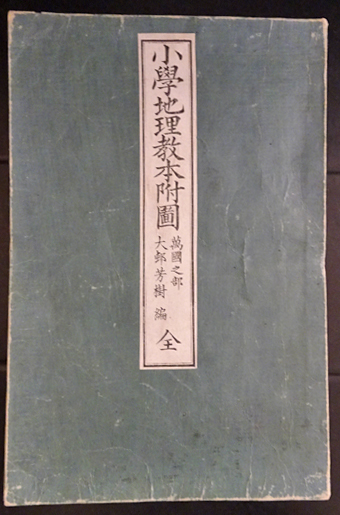 小學地理教本附圖
萬國之部
大邨芳樹 編
全